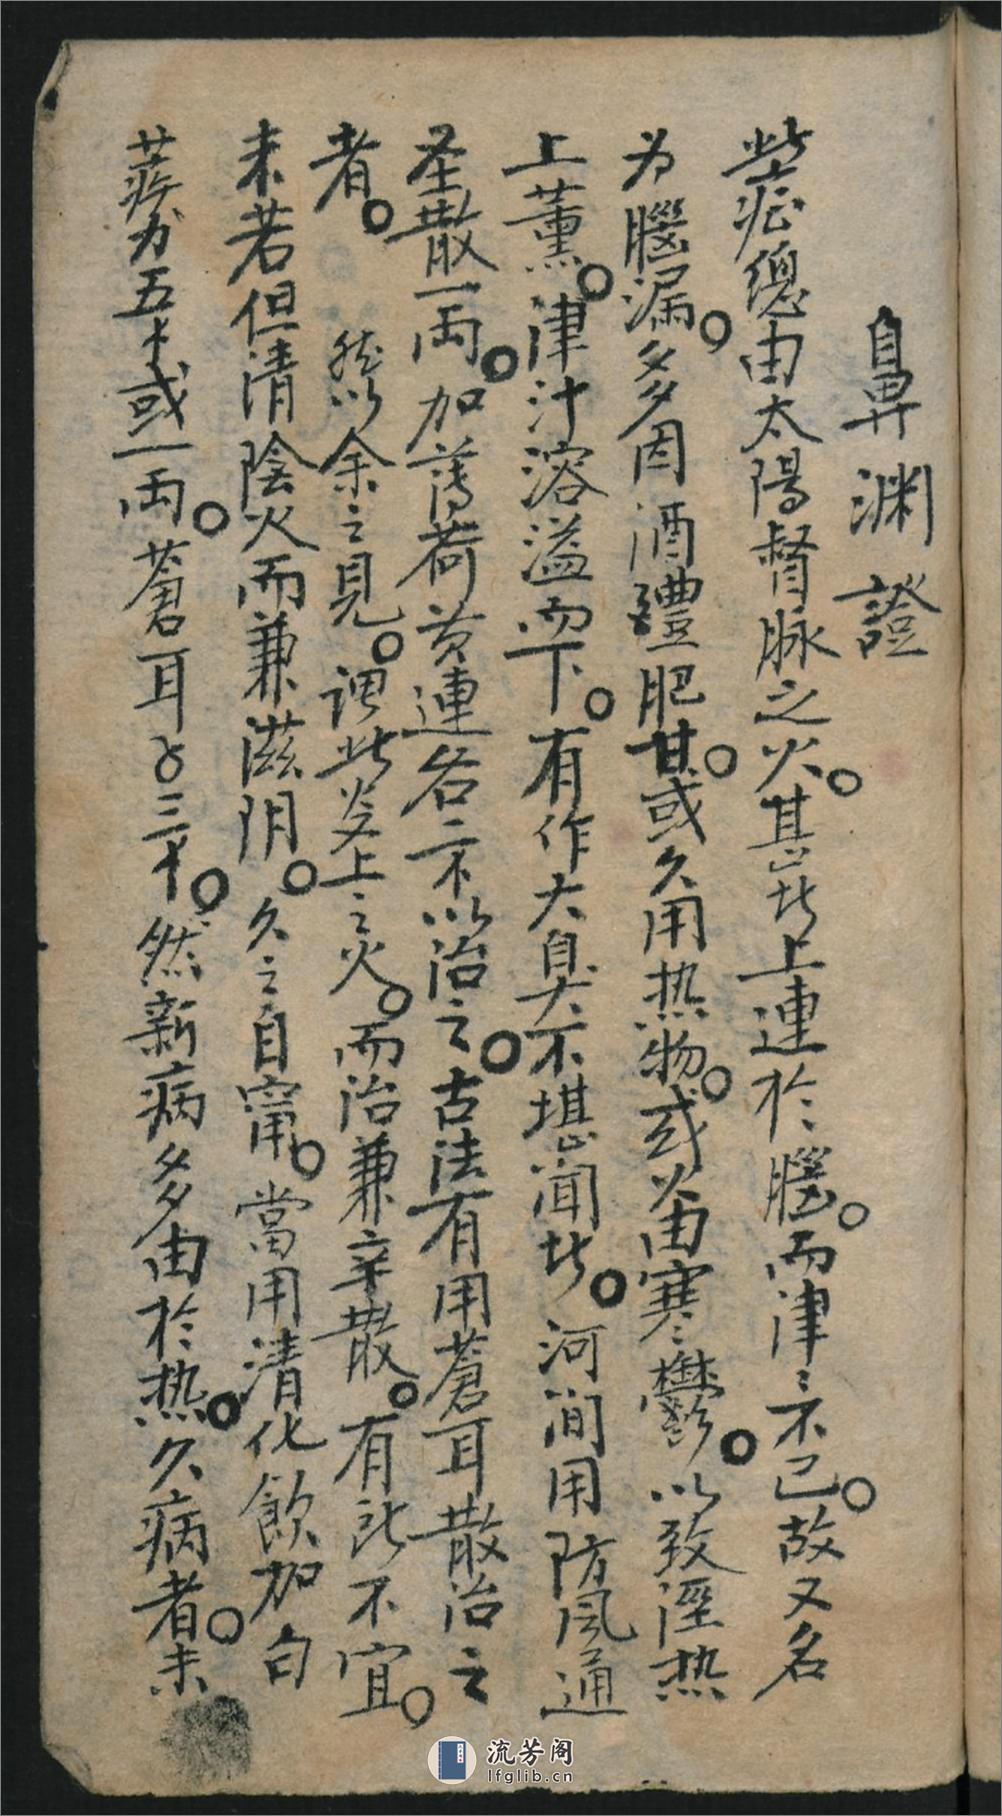 鼻渊證
此症總由太陽督脉之火其此上連於腦而津〻不已故又名
为腦漏多因酒醴肥甘或久用热物或火由寒鬱以致溼热
上薰津汁溶溢而下有作大臭不堪闻此河间用防风通
圣散一両加薄荷黄連各二不以治之古法有用蒼耳散治之
者然以余之見谓此炎上之火而治兼辛散有所不宜
未若但清陰火而兼滋阴久之自甯當用清化飲加白
蒺为五十或一両蒼耳子三十然新病多由於热久病者未
流芳阁
lfglib.cn